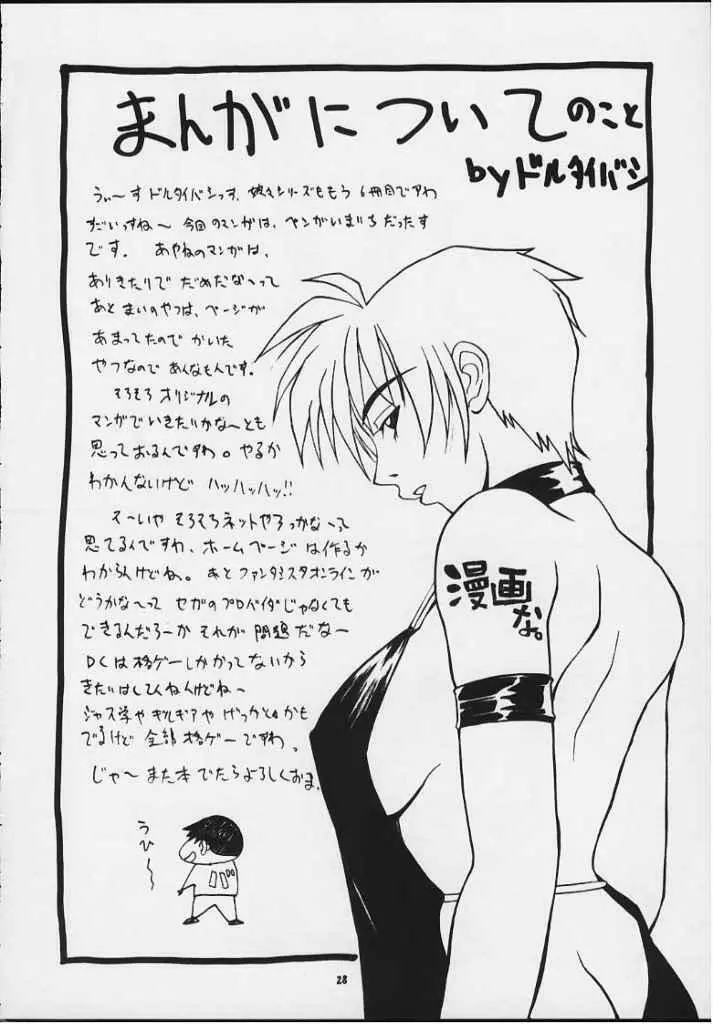 まんがについてのこと
byドルタイバシ
うぃ〜す ドルタイバシっす、娘々シリーズももう6冊目ですわ
すごいっすね〜 今回のマンガは、ペンがいまいちだったす
です。 あやねのマンガは、
ありきたりで だめだな〜って
あと まいのやつは、ページが
あまってたので かいた
やつなので あんなもんです。
そろそろ オリジナルの
マンガでいきたいかな〜とも
思っておるんですわ。やるか
わかんないけど ハッハッハッ!!
そ〜いや そろそろネットやろっかな〜って
思てるんですわ、ホームページは作るか
わからんけどね。あと ファンタシスタオンラインが
どうかな〜って セガのプロバイダじゃなくても
できるんだろーか それが 問題 だな〜
DCは格ゲーしかかってないから
きたいはしてんねんけどね〜
ジャス学や ギルギアや げっかとかも
でるけど 全部 格ゲーですわ。
じゃ〜 また本 でたらよろしくおま.
うひ〜〜
漫画
な。
28